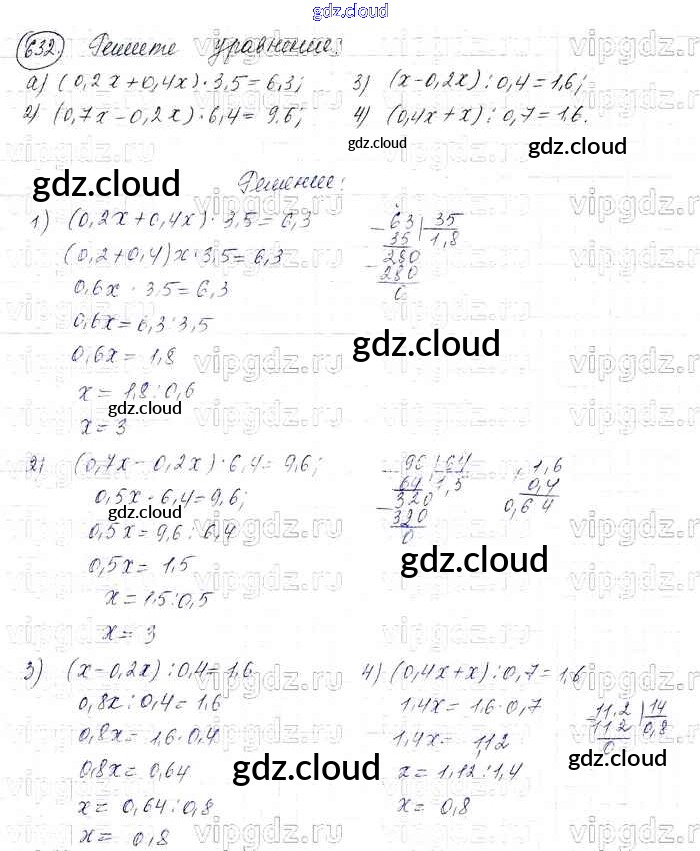 gdz.cloud
632. Решите уравнение:
а) (0,2x+0,4x)·3,5=6,3; 3) (x-0,2x):0,4=1,6;
2) (0,7x-0,2x)·6,4=9,6; 4) (0,4x+x):0,7=1,6.
gdz.cloud
gdz.cloud
gdz.cloud
Решение:
1) (0,2x+0,4x)·3,5=6,3
(0,2+0,4)x·3,5=6,3
0,6x·3,5=6,3
0,6x=6,3:3,5
0,6x=1,8
x=1,8:0,6
x=3
63 35
35 1,8
280
280
0
gdz.cloud
gdz.cloud
2) (0,7x-0,2x)·6,4=9,6;
0,5x·6,4=9,6;
0,5x=9,6:6,4
0,5x=1,5
x=1,5:0,5
x=3
96 64
64 1,5
320
320
0
1,6
0,4
0,64
gdz.cloud
gdz.cloud
3) (x-0,2x):0,4=1,6
0,8x:0,4=1,6
0,8x=1,6·0,4
0,8x=0,64
x=0,64:0,8
x=0,8
4) (0,4x+x):0,7=1,6
1,4x=1,6·0,7
1,4x=1,12
x=1,12:1,4
x=0,8
11,2 14
11 2 0,8
0
gdz.cloud
gdz.cloud
vipgdz.ru